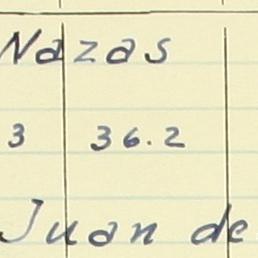 Nazas
3 36.2
Juan de